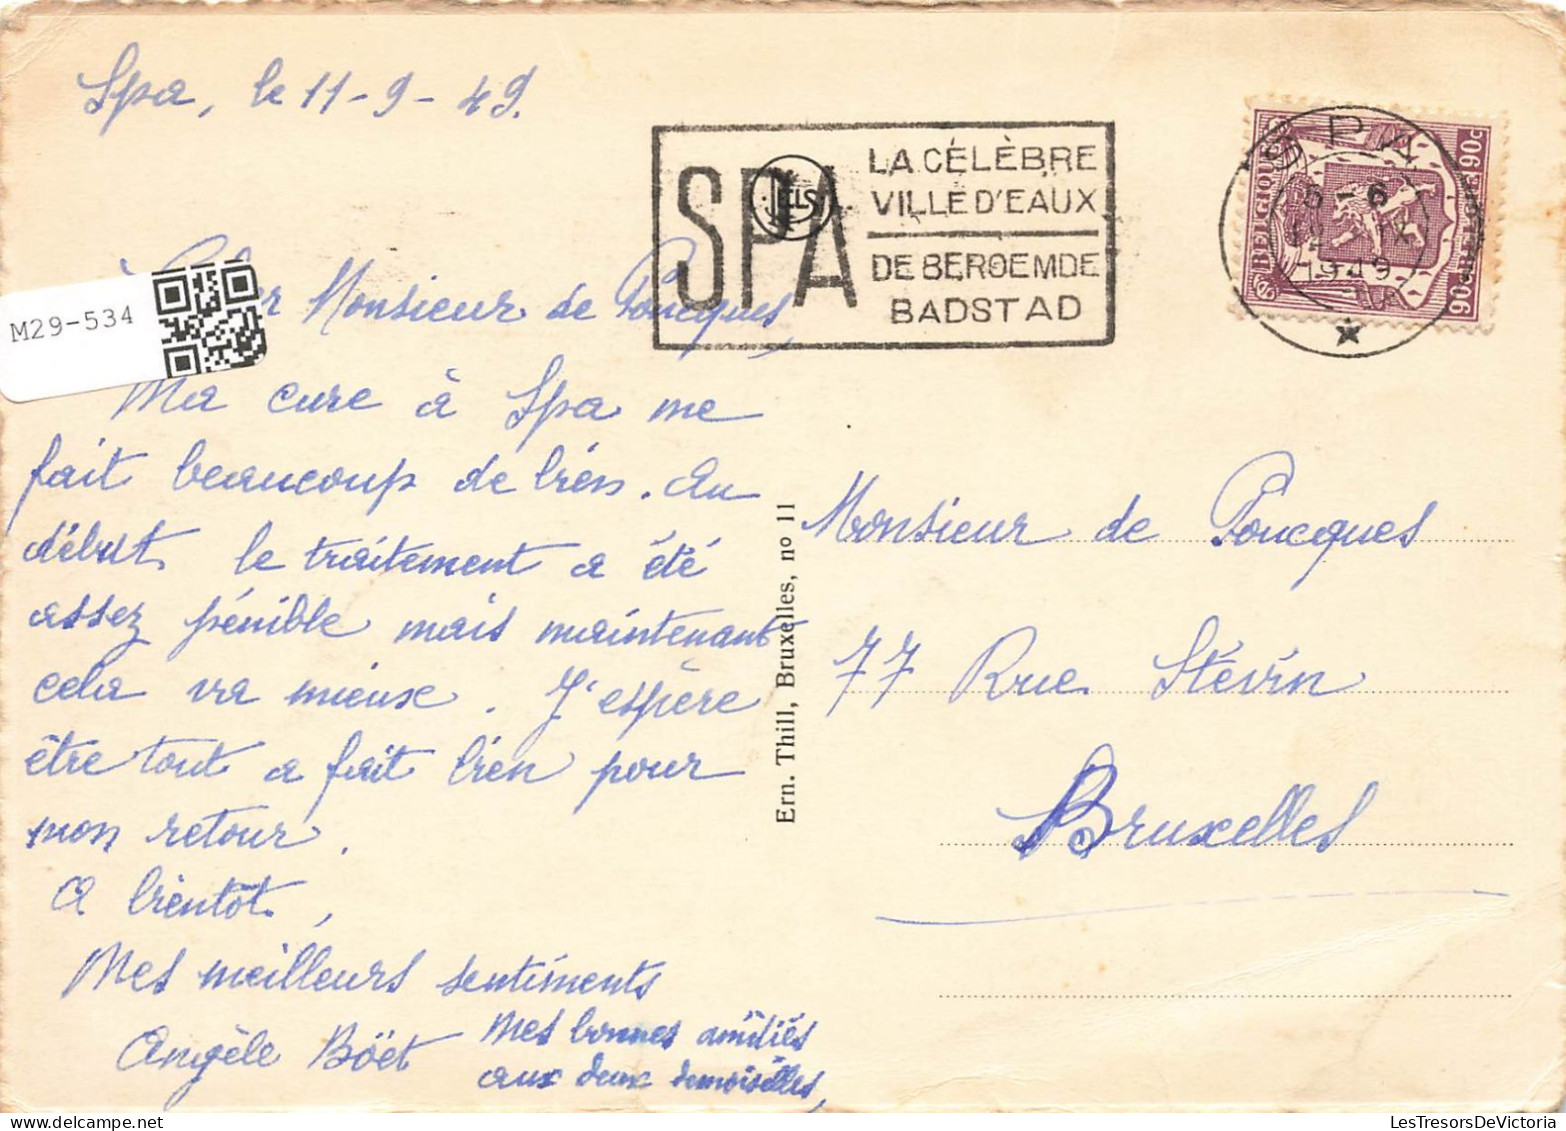 Spa, le 11-9-49.
SPA
LA CÉLÈBRE
VILLE D'EAUX
DE BEROEMDE
BADSTAD
SPA
1949
BELGIQUE
90c
90c
M29-534
Monsieur de Poucques,
Ma cure à Spa me
fait beaucoup de bien. Au
début le traitement a été
assez pénible mais maintenant
cela va mieux. J'espère
être tout a fait bien pour
mon retour.
A bientôt,
Mes meilleurs sentiments
Angèle Böet
Mes bonnes amitiés
aux deux demoiselles,
Ern. Thill, Bruxelles, nº 11
Monsieur de Poucques
77 Rue Stévin
Bruxelles
LesTresorsDeVictoria.com